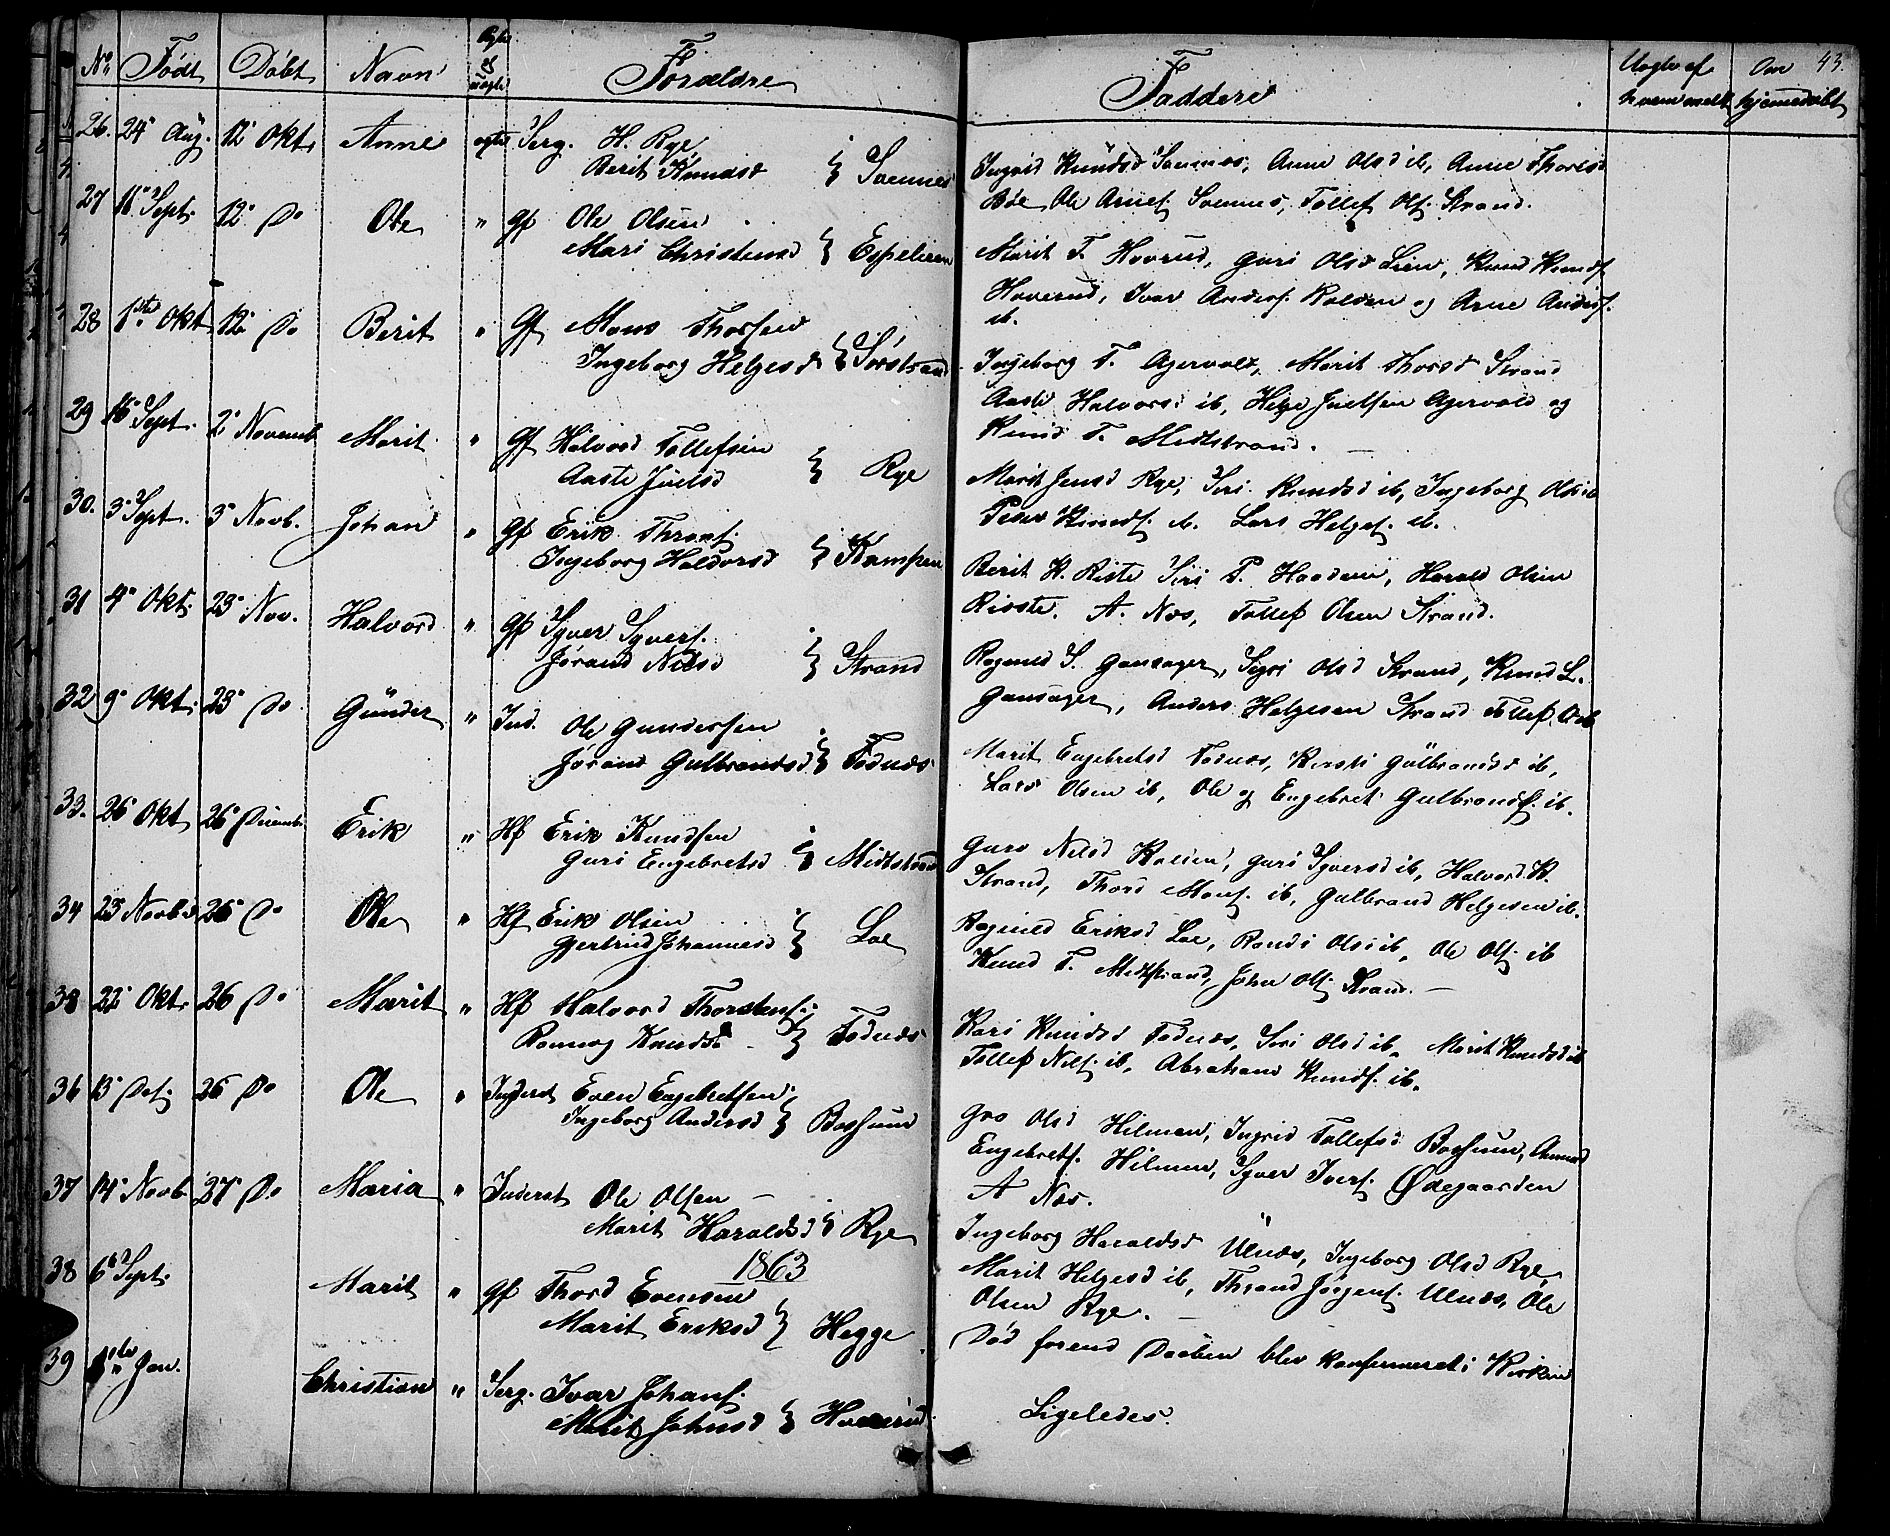 No Født Døbt Navn Ægte og uægte Forældre
26. 24. Aug. 12 Okt. Anne ægte Serg. H. Rye
Berit Knudsd } Svennes
27 11 Sept. 12 Do Ole " Gf Ole Olsen
Mari Christensd } Espelien
28 1ste Okt 12 Do Berit " Gf Mons Thorsen
Ingeborg Helgesd } Sørstrand
29 16 Sept. 2 Novemb Marit " Gf Halvord Tollefsen
Aaste Juelsd } Rye
30. 3 Sept. 3 Novb. Johan " Gf Erik Thronf.
Ingeborg Haldorsd } Kampen
31 4 Okt. 23 Nov. Halvord " Gf Syver Syverf.
Jørand Nilsd } Strand
32 9 Okt. 23 Do Günder " Ind. Ole Gundersen
Jørand Gulbrandsd } Fodnæs
33. 26 Okt 26 Decemb. Erik " Hf Erik Knudsen
Guri Engebretsd } Midtstrand
34 23 Novb. 26 Do Ole " Hf Erik Olsen
Gjertrud Johannesd } Loe
38 22 Okt. 26 Do Marit " Hf Halvord Thorstenf.
Rønnog Knudsd } Fodnæs
36 13 26 Do Ole " Inderst Even Engebretsen
Ingeborg Andersd } Baghuun
37 14 Novb 27 Do Maria " Inderst Ole Olsen
Marit Haraldsd } Rye
1863
38 6 Sept. Marit " Gf Thord Evensen
Marit Eriksd } Hegge
39 1ste Jan. Christian " Serg. Ivar Johanf.
Marit Johnsd } Haverud
Faddere Uægte af hvem anmeldt Om hjemmedøbt 43.
Ingrid Knudsd Svennes, Anne Olsd ib, Anne Thorsd
Bøe, Ole Arnef. Svennes, Tollef Olf. Strand.
Marit T. Hovrud, Guri Olsd Lien, Knud Knudf.
Haverud, Ivar Andersf. Kolden og Arne Andersf.
ib.
Ingeborg T. Agervold, Marit Thorsd Strand
Aaste Halvorsd ib, Helge Juelsen Agervold og
Knud T. Midtstrand.
Marit Jensd Rye, Siri Knudsd ib, Ingeborg Olsd ib
Peder Knudf. ib. Lars Helgef. ib.
Berit K. Riste Siri P. Haadem, Harald Olsen
Risste. A. Næs, Tollef Olsen Strand.
Ragnild S. Gausager, Sigri Olsd Strand, Knud L.
Gausager, Anders Helgesen Strand Tollef
Marit Engebretsd Fodnæs, Kersti Gülbrandsd ib,
Lars Olsen ib, Ole og Engebret Gulbrandf. ib.
Guro Nilsd Kolden, Guri Syversd ib, Halvord K.
Strand, Thord Monf. ib, Gulbrand Helgesen ib.
Ragnild Eriksd Loe, Randi Olsd ib, Ole Olf. ib
Knud T. Midtstrand, John Olf. Strand.
Kari Knudsd Fodnæs, Siri Olsd ib, Marit Knudsd ib
Tollef Nilf. ib, Abraham Knudf. ib.
Gro Olsd Hilmen, Ingrid Tollefsd Baghuun, Amund
Engebretf. Hilmen, Syver Iverf. Ødegaarden
A Næs.
Ingeborg Haraldsd Ulnæs, Ingeborg Olsd Rye
Marit Helgesd ib, Thrond Jørgenf. Ulnæs, Ole
Olsen Rye.
Død førend Daaben blev konfirmeret i Kirken
Ligeledes.